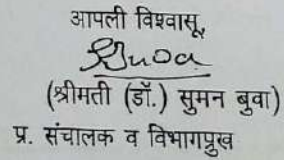 आपली विश्वासू,
(श्रीमती (डॉ.) सुमन बुवा)
प्र. संचालक व विभागप्रुख